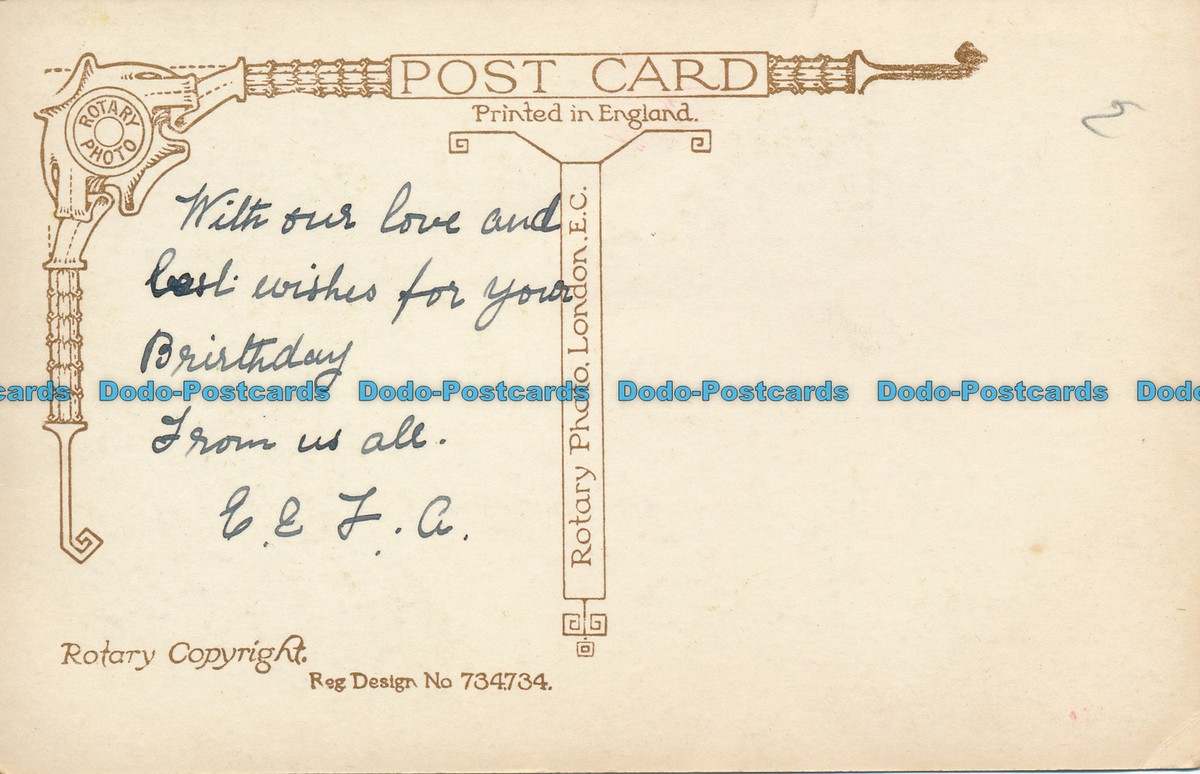 POST CARD
Printed in England.
ROTARY PHOTO
With our love and
best wishes for your
Bristhday
From us all.
E. E F. A.
Rotary Photo, London. E.C.
Dodo-Postcards Dodo-Postcards Dodo-Postcards Dodo-Postcards
Rotary Copyright.
Reg. Design No 734734.